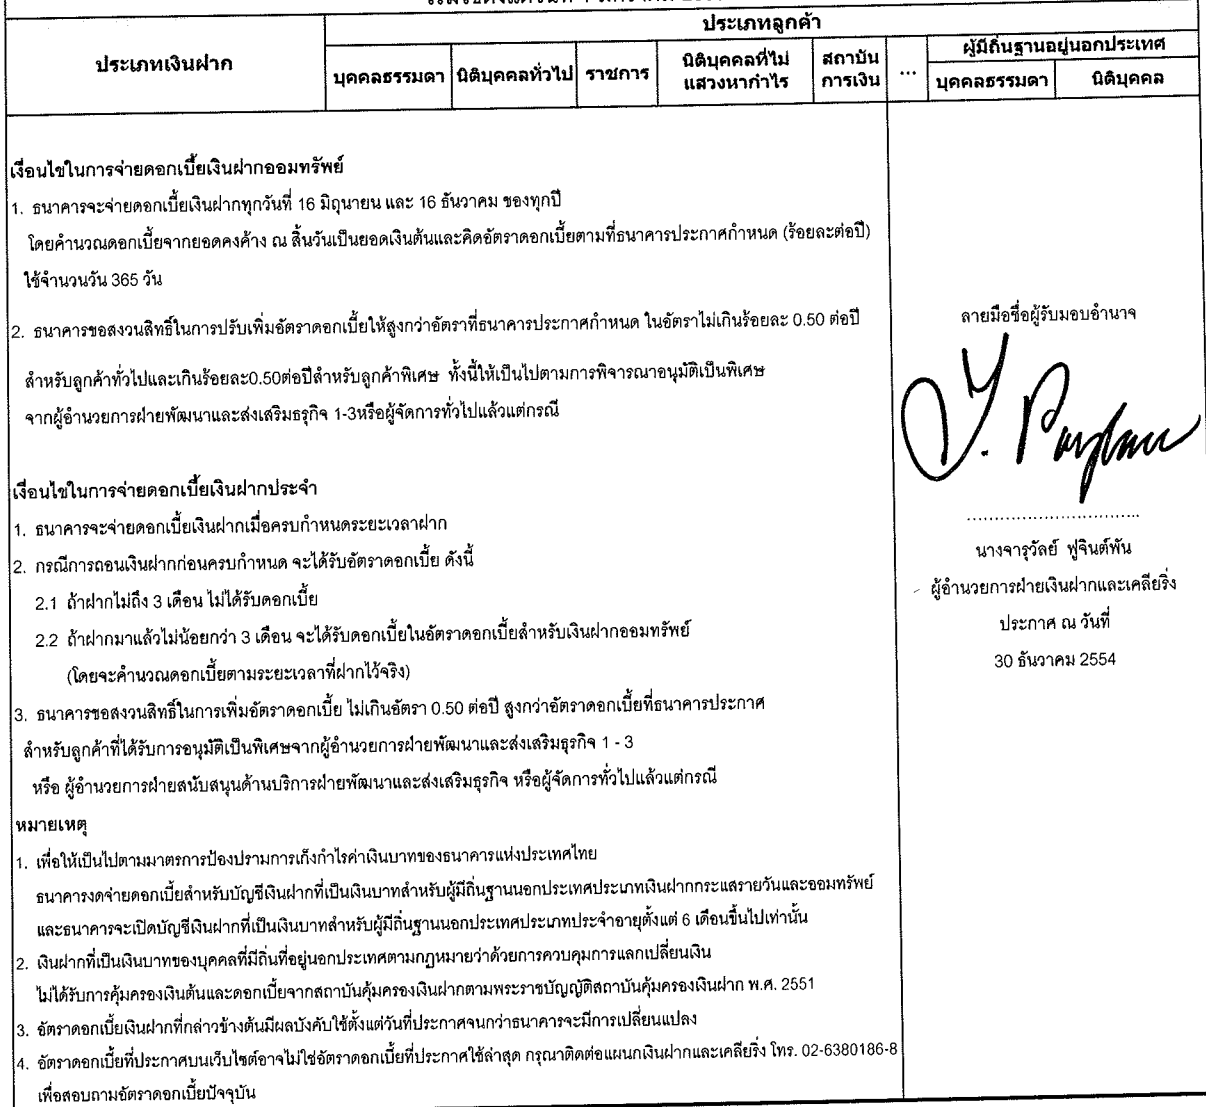 ประเภทลูกค้า
ประเภทเงินฝาก
บุคคลธรรมดา นิติบุคคลทั่วไป ราชการ นิติบุคคลที่ไม่แสวงหากำไร สถาบันการเงิน ... ผู้มีถิ่นฐานอยู่นอกประเทศ
บุคคลธรรมดา นิติบุคคล
เงื่อนไขในการจ่ายดอกเบี้ยเงินฝากออมทรัพย์
1. ธนาคารจะจ่ายดอกเบี้ยเงินฝากทุกวันที่ 16 มิถุนายน และ 16 ธันวาคม ของทุกปี
โดยคำนวณดอกเบี้ยจากยอดคงค้าง ณ สิ้นวันเป็นยอดเงินต้นและคิดอัตราดอกเบี้ยตามที่ธนาคารประกาศกำหนด (ร้อยละต่อปี)
ใช้จำนวนวัน 365 วัน
2. ธนาคารขอสงวนสิทธิ์ในการปรับเพิ่มอัตราดอกเบี้ยให้สูงกว่าอัตราที่ธนาคารประกาศกำหนด ในอัตราไม่เกินร้อยละ 0.50 ต่อปี
สำหรับลูกค้าทั่วไปและเกินร้อยละ0.50ต่อปีสำหรับลูกค้าพิเศษ ทั้งนี้ให้เป็นไปตามการพิจารณาอนุมัติเป็นพิเศษ
จากผู้อำนวยการฝ่ายพัฒนาและส่งเสริมธุรกิจ 1-3หรือผู้จัดการทั่วไปแล้วแต่กรณี
เงื่อนไขในการจ่ายดอกเบี้ยเงินฝากประจำ
1. ธนาคารจะจ่ายดอกเบี้ยเงินฝากเมื่อครบกำหนดระยะเวลาฝาก
2. กรณีการถอนเงินฝากก่อนครบกำหนด จะได้รับอัตราดอกเบี้ย ดังนี้
2.1 ถ้าฝากไม่ถึง 3 เดือน ไม่ได้รับดอกเบี้ย
2.2 ถ้าฝากมาแล้วไม่น้อยกว่า 3 เดือน จะได้รับดอกเบี้ยในอัตราดอกเบี้ยสำหรับเงินฝากออมทรัพย์
(โดยจะคำนวณดอกเบี้ยตามระยะเวลาที่ฝากไว้จริง)
3. ธนาคารขอสงวนสิทธิ์ในการเพิ่มอัตราดอกเบี้ย ไม่เกินอัตรา 0.50 ต่อปี สูงกว่าอัตราดอกเบี้ยที่ธนาคารประกาศ
สำหรับลูกค้าที่ได้รับการอนุมัติเป็นพิเศษจากผู้อำนวยการฝ่ายพัฒนาและส่งเสริมธุรกิจ 1 - 3
หรือ ผู้อำนวยการฝ่ายสนับสนุนด้านบริการฝ่ายพัฒนาและส่งเสริมธุรกิจ หรือผู้จัดการทั่วไปแล้วแต่กรณี
หมายเหตุ
1. เพื่อให้เป็นไปตามมาตรการป้องปรามการเก็งกำไรค่าเงินบาทของธนาคารแห่งประเทศไทย
ธนาคารงดจ่ายดอกเบี้ยสำหรับบัญชีเงินฝากที่เป็นเงินบาทสำหรับผู้มีถิ่นฐานนอกประเทศประเภทเงินฝากกระแสรายวันและออมทรัพย์
และธนาคารจะเปิดบัญชีเงินฝากที่เป็นเงินบาทสำหรับผู้มีถิ่นฐานนอกประเทศประเภทประจำอายุตั้งแต่ 6 เดือนขึ้นไปเท่านั้น
2. เงินฝากที่เป็นเงินบาทของบุคคลที่มีถิ่นที่อยู่นอกประเทศตามกฎหมายว่าด้วยการควบคุมการแลกเปลี่ยนเงิน
ไม่ได้รับการคุ้มครองเงินต้นและดอกเบี้ยจากสถาบันคุ้มครองเงินฝากตามพระราชบัญญัติสถาบันคุ้มครองเงินฝาก พ.ศ. 2551
3. อัตราดอกเบี้ยเงินฝากที่กล่าวข้างต้นมีผลบังคับใช้ตั้งแต่วันที่ประกาศจนกว่าธนาคารจะมีการเปลี่ยนแปลง
4. อัตราดอกเบี้ยที่ประกาศบนเว็บไซต์อาจไม่ใช่อัตราดอกเบี้ยที่ประกาศใช้ล่าสุด กรุณาติดต่อแผนกเงินฝากและเคลียริ่ง โทร. 02-6380186-8
เพื่อสอบถามอัตราดอกเบี้ยปัจจุบัน
ลายมือชื่อผู้รับมอบอำนาจ
นางจารุวัลย์ ฟูจินต์พัน
ผู้อำนวยการฝ่ายเงินฝากและเคลียริ่ง
ประกาศ ณ วันที่
30 ธันวาคม 2554